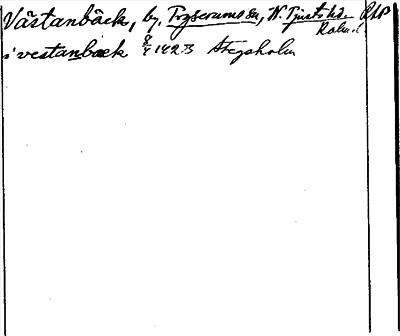 Västanbäck, by, Tryserums sn, N. Tjusts hd. RAP
Kalm. l.
i vestanbæk 8/4 1423 Stegeholm